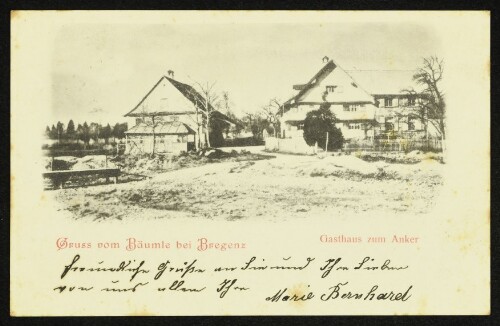 Gruss vom Bäumle bei Bregenz
Gasthaus zum Anker
freundliche Grüße an Sie und Ihre Lieben
von uns allen Ihre
Marie Bernhard